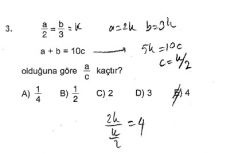 3. a/2 = b/3 = k a=2k b=3k
a + b = 10c → 5k=10c
c=k/2
olduğuna göre a/c kaçtır?
A) 1/4 B) 1/2 C) 2 D) 3 E) 4
2k/(k/2) = 4